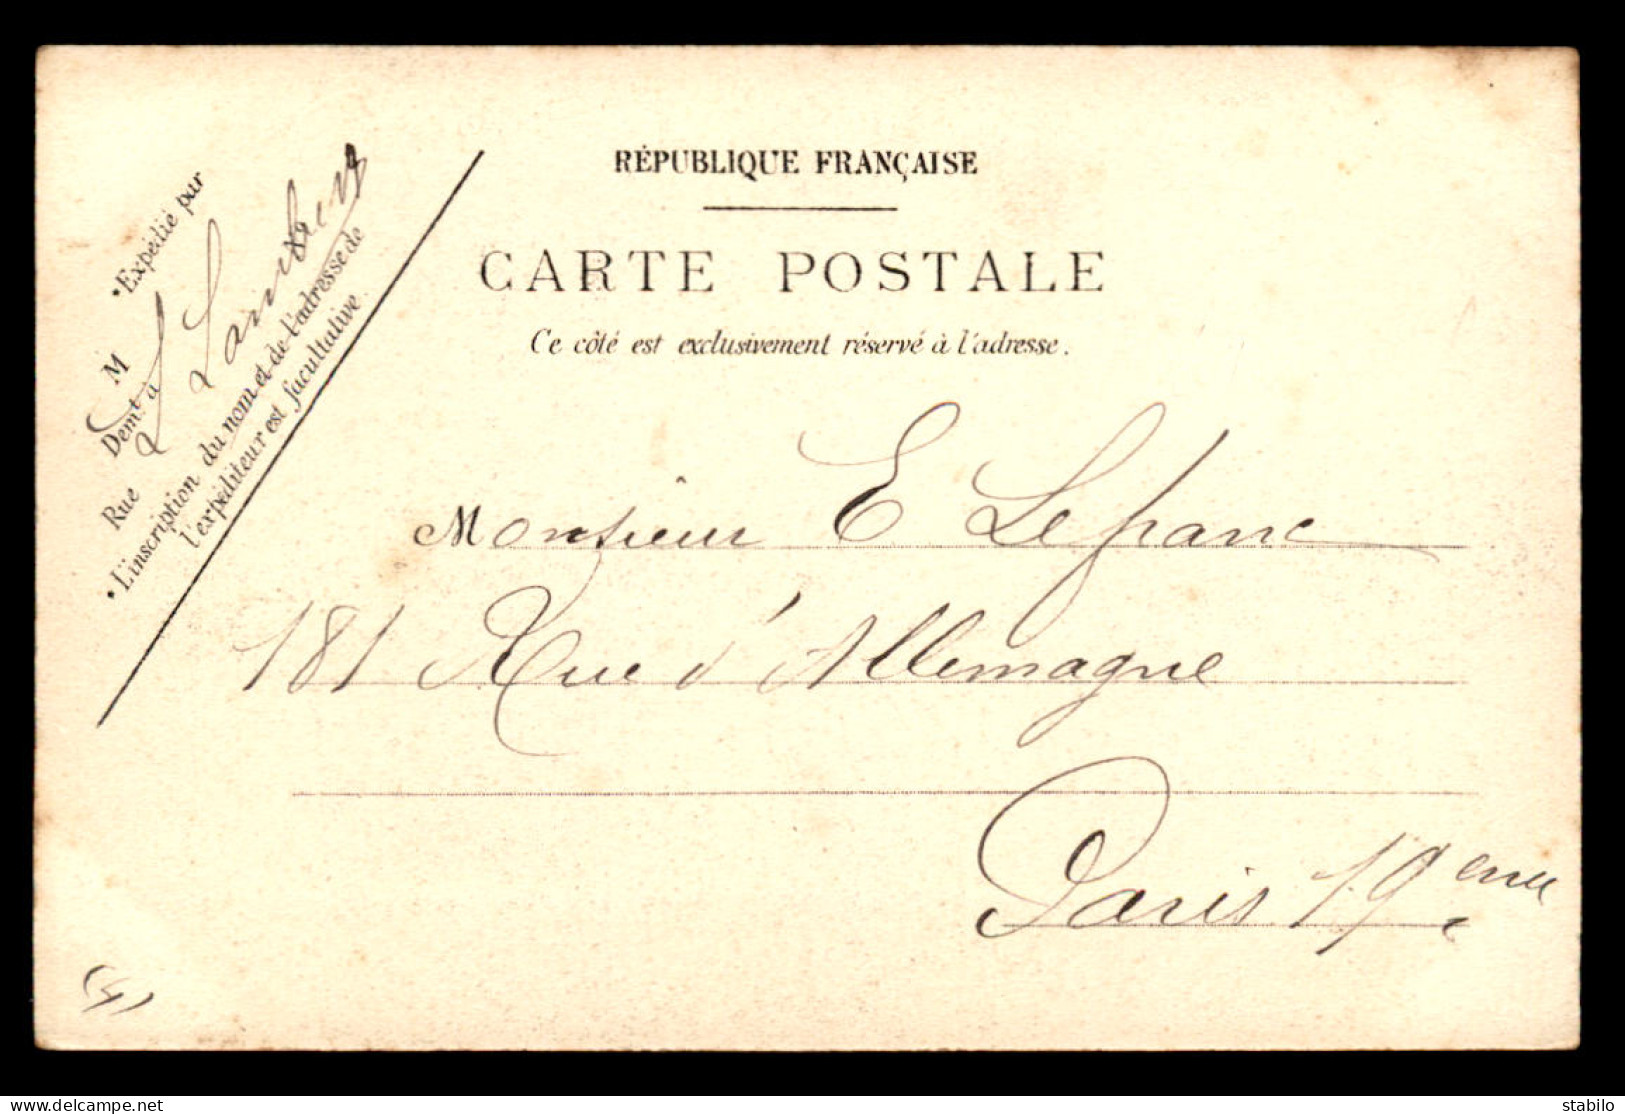 *Expédié par
M L Lambert
Dem.t à
Rue
*L'inscription du nom et de l'adresse de
l'expéditeur est facultative.
RÉPUBLIQUE FRANÇAISE
CARTE POSTALE
Ce côté est exclusivement réservé à l'adresse.
Monsieur E Lefranc
181 Rue d'Allemagne
Paris 19eme
delcampe.net
stabilo